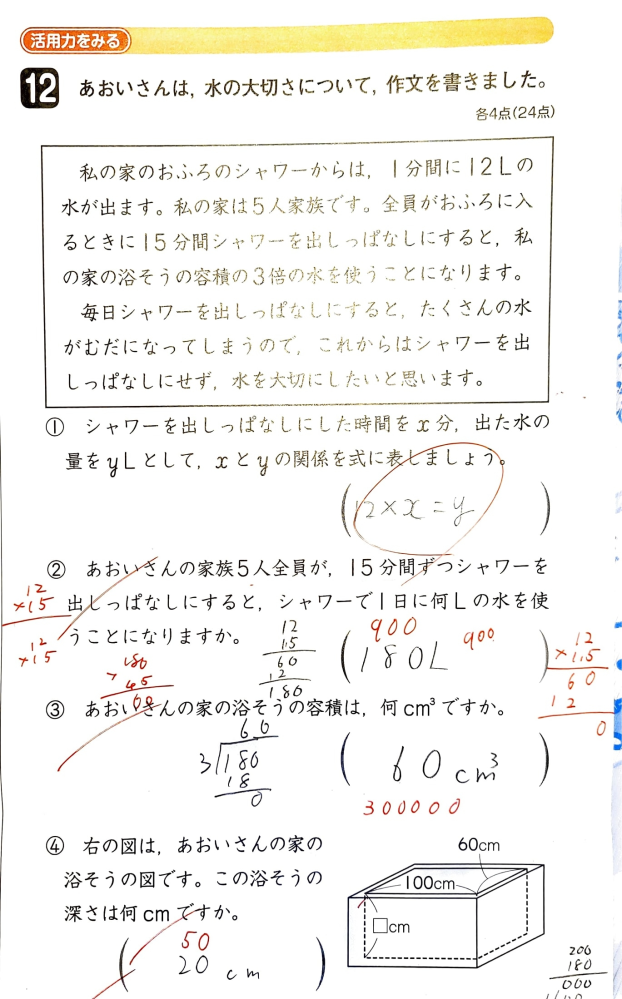 活用力をみる
12 あおいさんは,水の大切さについて,作文を書きました。
各4点(24点)
私の家のおふろのシャワーからは,1分間に12Lの
水が出ます。私の家は5人家族です。全員がおふろに入
るときに15分間シャワーを出しっぱなしにすると,私
の家の浴そうの容積の3倍の水を使うことになります。
毎日シャワーを出しっぱなしにすると,たくさんの水
がむだになってしまうので,これからはシャワーを出
しっぱなしにせず,水を大切にしたいと思います。
① シャワーを出しっぱなしにした時間をx分,出た水の
量をyLとして,xとyの関係を式に表しましょう。
(12×x=y)
② あおいさんの家族5人全員が,15分間ずつシャワーを
出しっぱなしにすると,シャワーで1日に何Lの水を使
うことになりますか。
12
×15
12
×15
180
×45
00
12
15
60
12
180
900
900
(180L)
12
×1.5
60
12
0
③ あおいさんの家の浴そうの容積は,何cm³ですか。
60
3)180
18
0
(60cm³)
300000
④ 右の図は,あおいさんの家の
浴そうの図です。この浴そうの
深さは何cmですか。
50
(20cm)
60cm
100cm
□cm
200
180
000